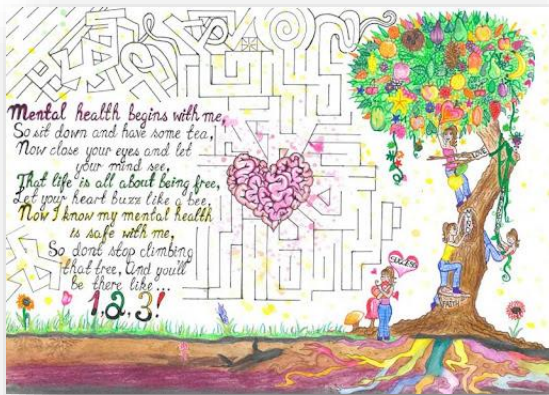 Mental health begins with me,
So sit down and have some tea,
Now close your eyes and let
your mind see,
That life is all about being free,
Let your heart buzz like a bee,
Now I know my mental health
is safe with me,
So dont stop climbing
that tree, And youll
be there like...
1,2,3!
SUCCESS
FAITH